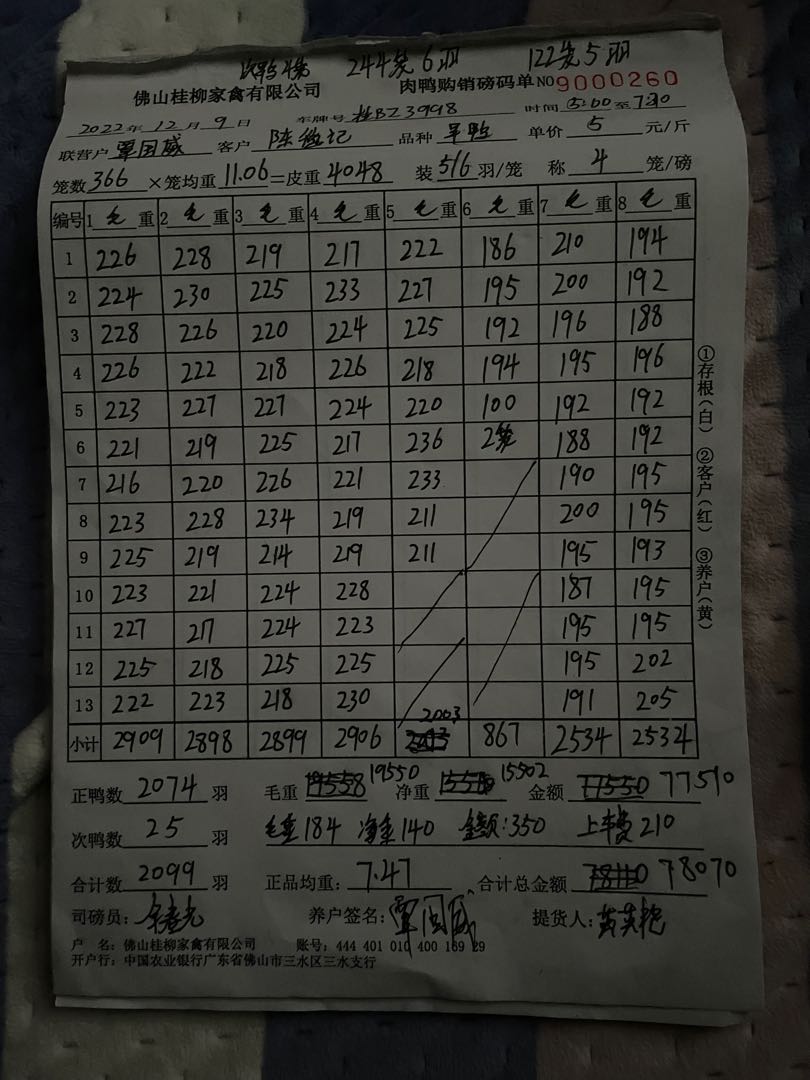 次鸭4笼 244笼6羽 122笼5羽
佛山桂柳家禽有限公司 肉鸭购销磅码单 NO 9000260
2022年12月9日 车牌号 桂BZ3998 时间 5:00 至 7:20
联营户 覃国威 客户 品种 单价 5 元/斤
笼数 366 ×笼均重 11.06 =皮重 4048 装 5/6 羽/笼 称 4 笼/磅
编号 1 毛 重 2 毛 重 3 毛 重 4 毛 重 5 毛 重 6 毛 重 7 毛 重 8 毛 重
1 226 228 219 217 222 186 210 194
2 224 230 225 233 227 195 200 192
3 228 226 220 224 225 192 196 188
4 226 222 218 226 218 194 195 196
5 223 227 227 224 220 100 192 192
6 221 219 225 217 236 2笼 188 192
7 216 220 226 221 233 190 195
8 223 228 234 219 211 200 195
9 225 219 214 219 211 195 193
10 223 221 224 228 187 195
11 227 217 224 223 195 195
12 225 218 225 225 195 202
13 222 223 218 230 191 205
小计 2909 2898 2899 2906 2003 867 2534 2534
正鸭数 2074 羽 毛重 19550 净重 15502 金额 77510
次鸭数 25 羽 毛重184 净重140 金额:350 上车费210
合计数 2099 羽 正品均重: 7.47 合计总金额 78070
司磅员: 养户签名: 覃国威 提货人:
户 名: 佛山桂柳家禽有限公司 账号: 444 401 010 400 169 29
开户行: 中国农业银行广东省佛山市三水区三水支行
①存根(白) ②客户(红) ③养户(黄)